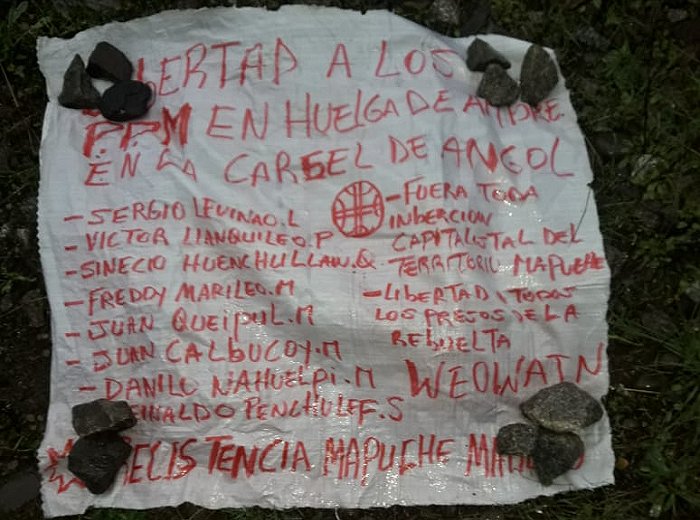 LERTAD A LOS
PPM EN HUELGA DE AMBRE
EN LA CARSEL DE ANGOL
- SERGIO LEVINAO.L
- VICTOR LLANQUILEO.P
- SINECIO HUENCHULLAN.Q
- FREDDY MARILEO.M
- JUAN QUEIPUL.M
- JUAN CALBUCOY.M
- DANILO NAHUELPI.M
EINALDO PENCHULEF.S
- FUERA TODA
INBERCION
CAPITALISTAL DEL
TERRITORIO MAPUCHE
- LIBERTAD A TODOS
LOS PRESOS DE LA
REBUELTA
WEOWAIN
RECISTENCIA MAPUCHE